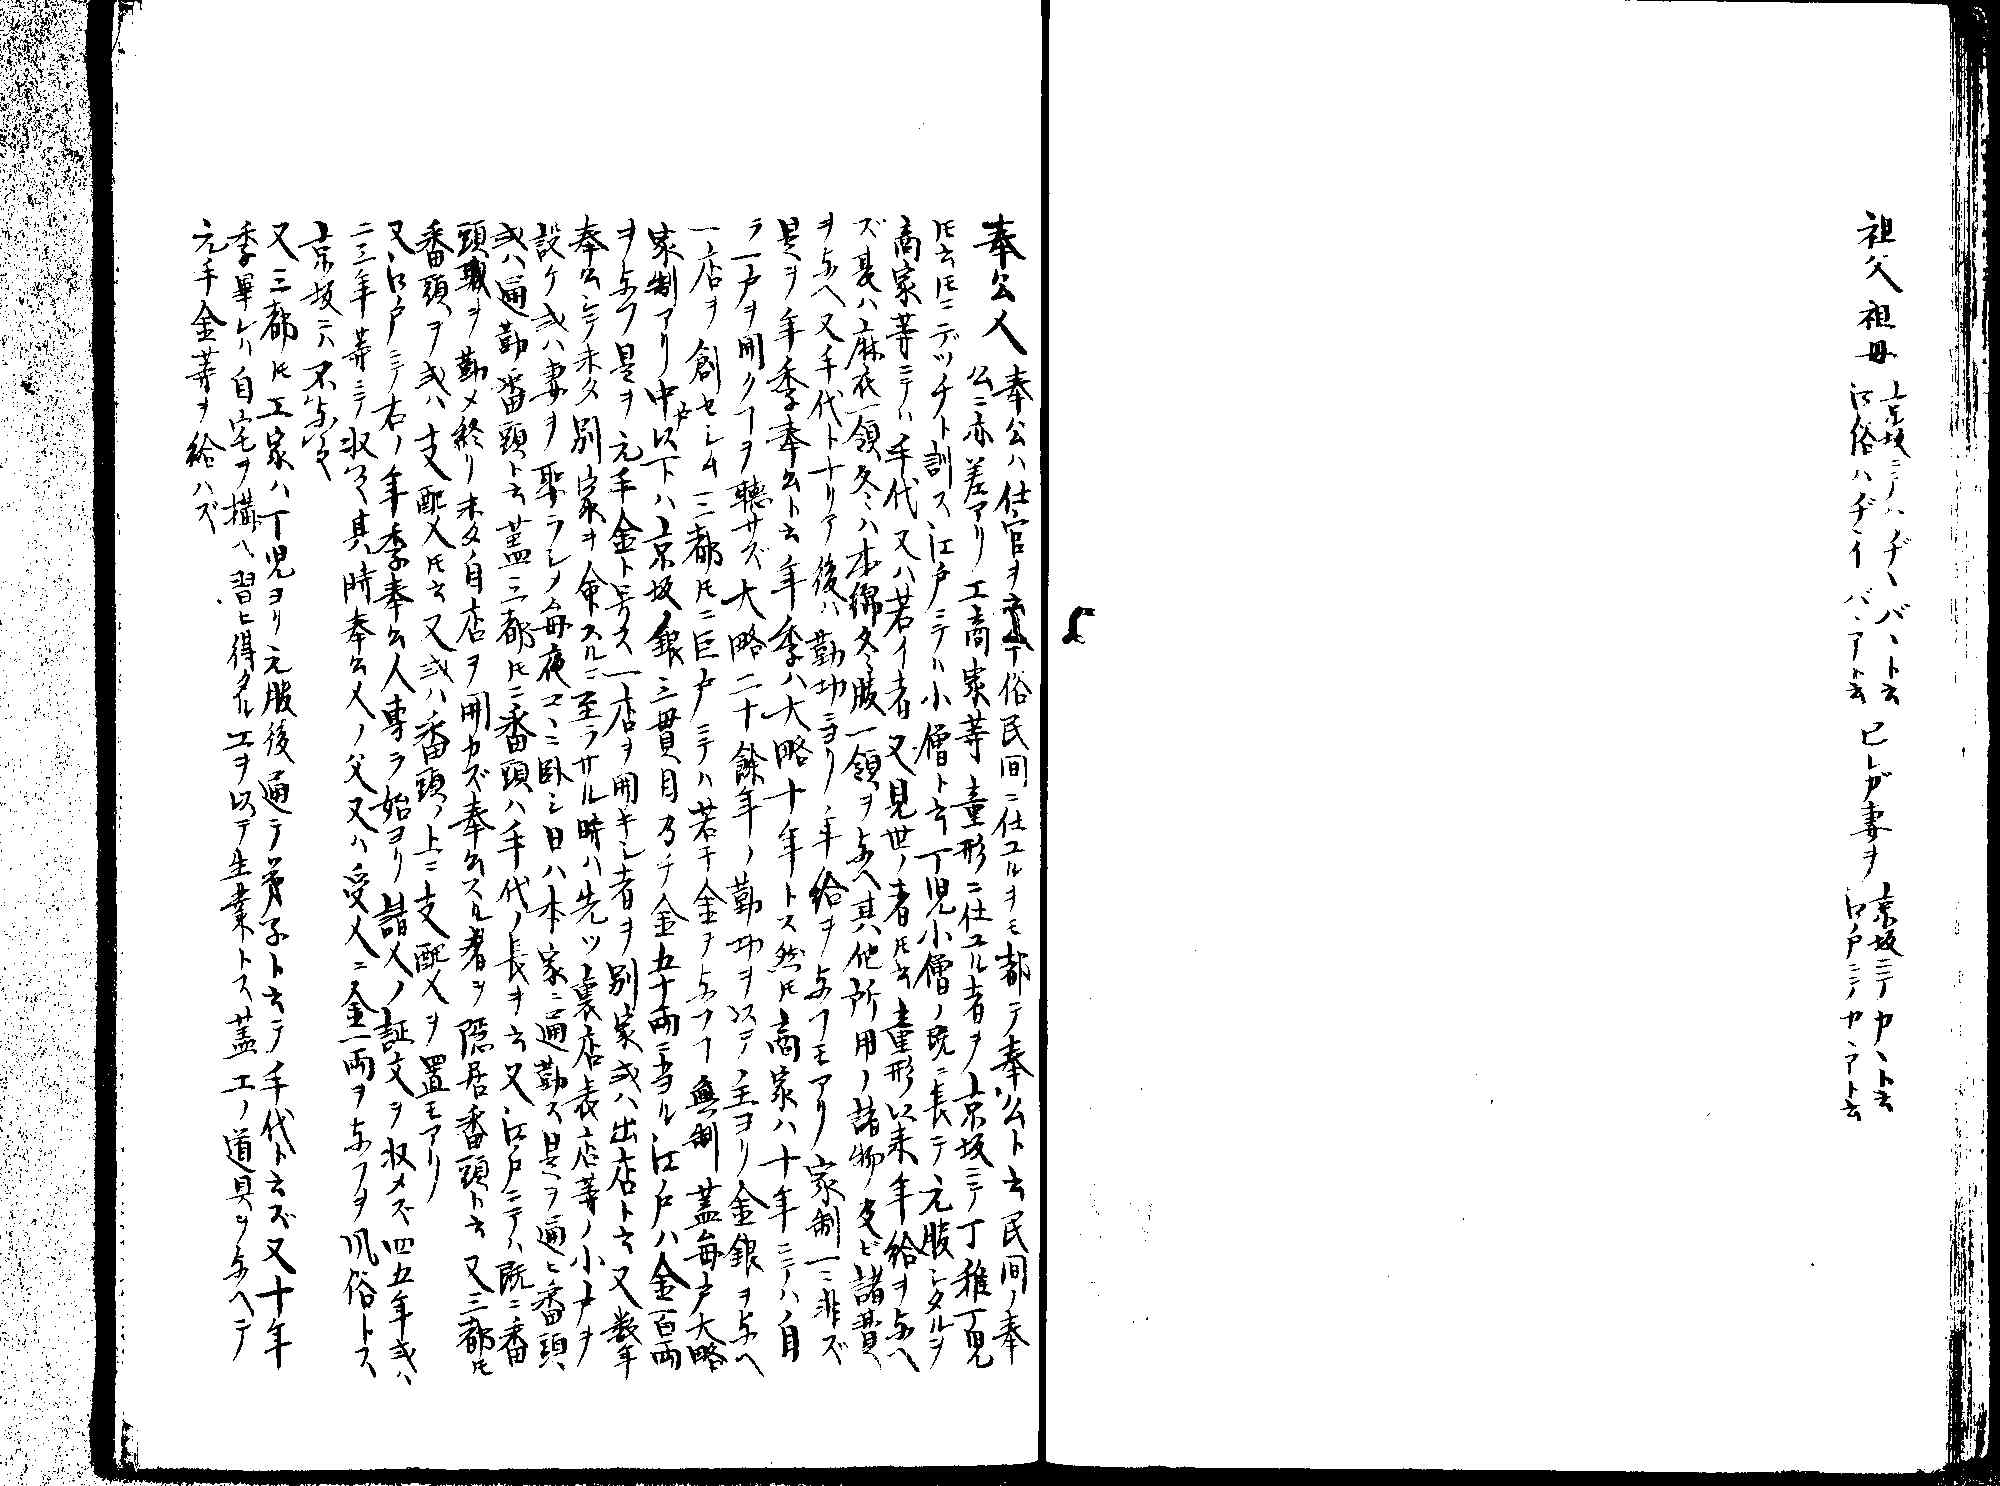 祖父祖母 京坂ニテハヂヽバヽト云 江俗ハヂイバヽアト云 已レガ妻ヲ 京坂ニテカヽト云 江戸ニテカヽアト云
奉公人 奉公ハ仕官ヲ云下俗民間ニ仕ユルヲモ都テ奉公ト云民間ノ奉
公ニ亦差アリ工商家等童形ニ仕ユル者ヲ京坂ニテ丁稚丁児
トモ云トモニデツチト訓ス江戸ニテハ小僧ト云丁児小僧ノ既ニ長テ元服シタルヲ
商家等ニテハ手代又ハ若イ者又見世ノ者トモ云童形以来年給ヲ与ヘ
ズ夏ハ麻衣一領冬ハ木綿冬服一領ヲ与ヘ其他所用ノ諸物及ビ諸費
ヲ与ヘ又手代トナリテ後ハ勤功ニヨリ年給ヲ与フモアリ家制一ニ非ズ
是ヲ年季奉公ト云年季ハ大略十年トス然トモ商家ハ十年ニテハ自
ラ一戸ヲ開クコヲ聴サズ大略二十餘年ノ勤功ヲ以テ主ヨリ金銀ヲ与ヘ
一店ヲ創セシム三都トモニ巨戸ニテハ若干金ヲ与フコ無制蓋毎戸大略
家制アリ中戸以下ハ京坂ノ銀三貫目乃チ金五十両ニ当ル江戸ハ金百両
ヲ与フ是ヲ元手金ト号ス一店ヲ開キシ者ヲ別家或ハ出店ト云又数年
奉公シテ未タ別家ヲ命スルニ至ラサル時ハ先ツ裏店表店等ノ小戸ヲ
設ケ或ハ妻ヲ娶ラシメ毎夜コヽニ臥シ日ハ本家ニ通勤ス是ヲ通ヒ番頭
或ハ通勤番頭ト云蓋三都トモニ番頭ハ手代ノ長ヲ云又江戸ニテハ既ニ番
頭職ヲ勤メ終リ未タ自店ヲ開カズ奉公スル者ヲ隠居番頭ト云又三都トモ
番頭ヲ或ハ支配人トモ云又或ハ番頭ノ上ニ支配人ヲ置モアリ
又江戸ニテ右ノ年季奉公人専ラ始ヨリ請人ノ証文ヲ収メズ四五年或ハ
二三年等ニテ収之其時奉公人ノ父又ハ受人ニ金一両ヲ与フヲ風俗トス
京坂ニハ不与之
又三都トモ工家ハ丁児ヨリ元服後通テ弟子ト云テ手代ト云ズ又十年
季畢レハ自宅ヲ構ヘ習ヒ得タル工ヲ以テ生業トス蓋工ノ道具ヲ与ヘテ
元手金等ヲ給ハズ